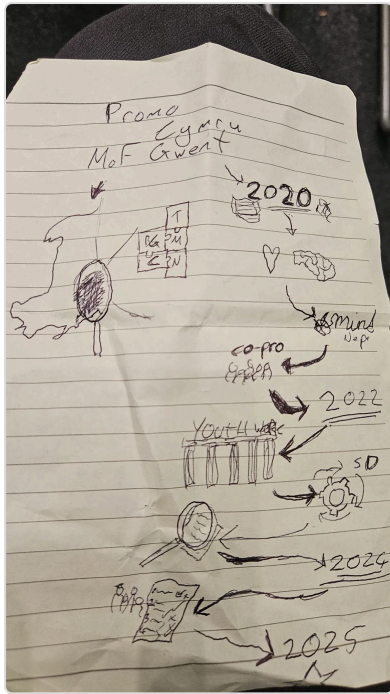 Promo
Cymru
MoF Gwent
2020
T
BG M
C N
Mind
co-pro
2022
YOUTH WORK
SD
2024
2025